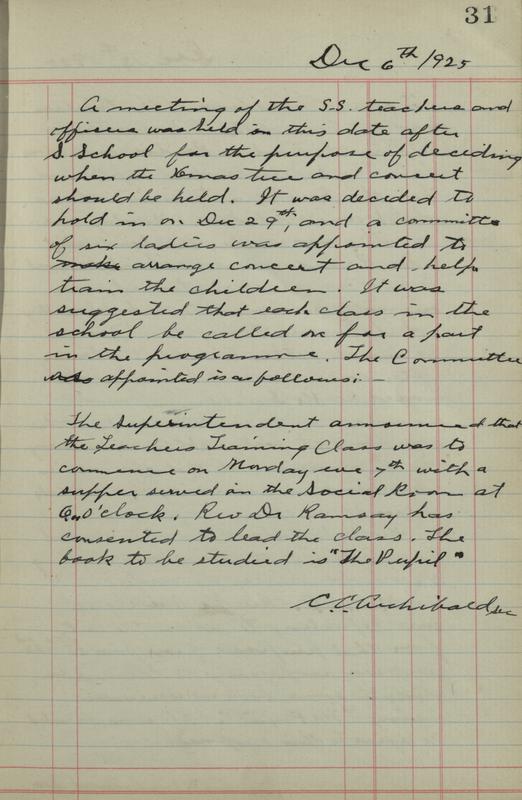 31
Dec 6th /1925
A meeting of the S.S. teachers and
officers was held on this date after
S. School for the purpose of deciding
when the Xmas tree and concert
should be held. It was decided to
hold in on Dec 29th, and a committee
of six ladies was appointed to
make arrange concert and help
train the children. It was
suggested that each class in the
school be called on for a part
in the programme. The Committee
was appointed is as follows:-
The Superintendent announced that
the Teachers Training Class was to
commence on Monday eve 7th with a
supper served in the Social Room at
6 O'clock. Rev Dr Ramsay has
consented to lead the class. The
book to be studied is "The Pupil"
C.C. Archibald Sec